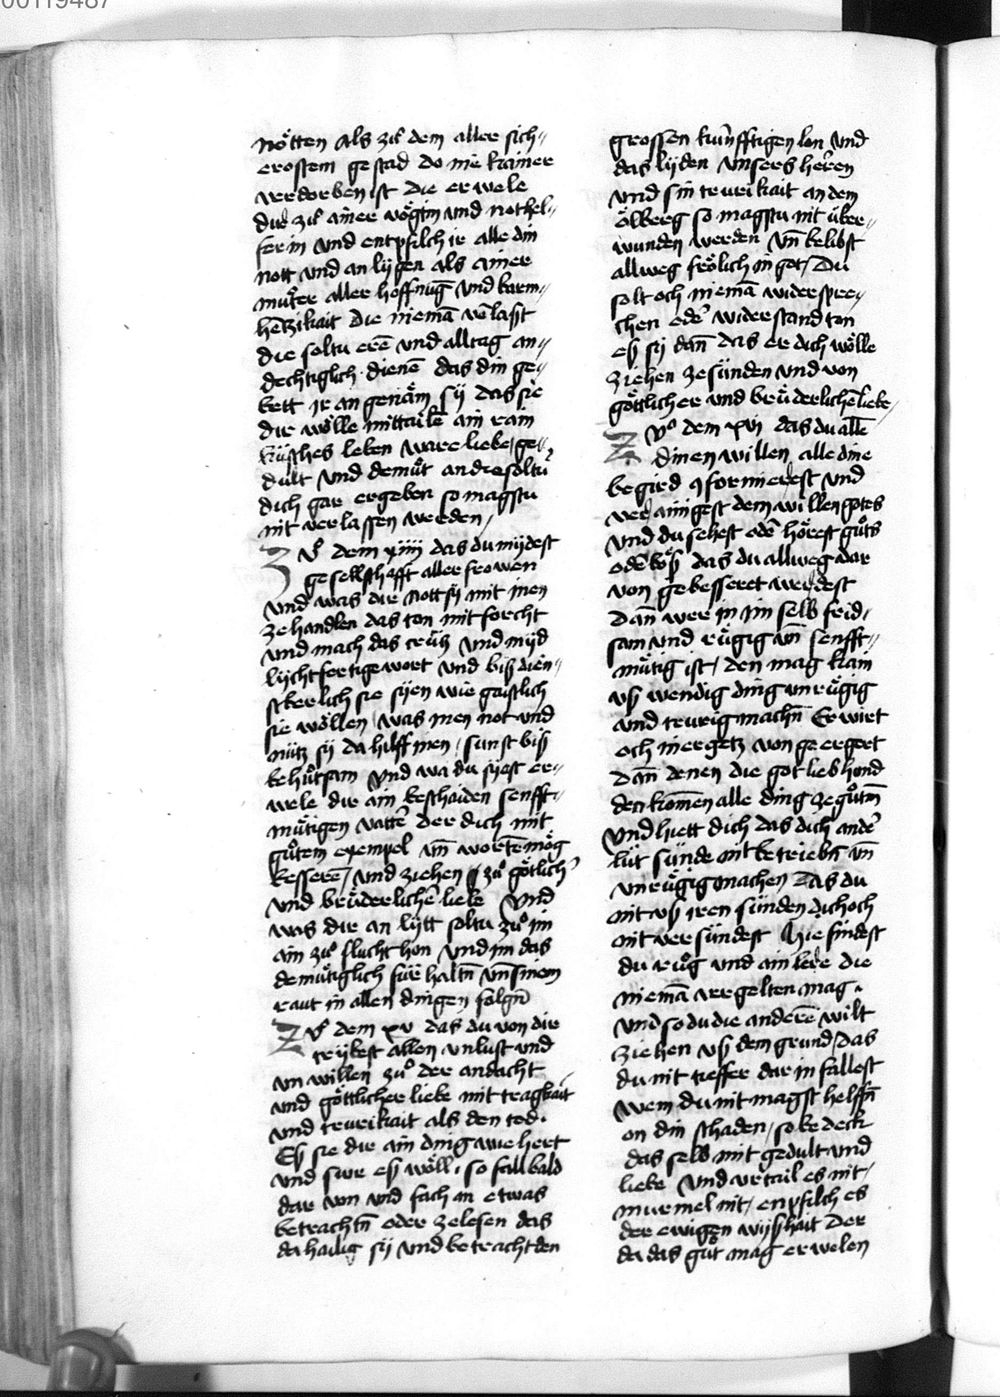 00119487
nötten als zuͦ dem aller sich⸗
erostem gestad do nie kainer
verdorben ist die erwele
dir zuͦ ainer vögtin und nothel⸗
ferin und entpfilch ir alle din
nott und anlÿgen als ainer
muͦter aller hoffnūg und barm⸗
hertzikait die niemā verlast
die soltu erē und alltag an⸗
dechtiglich dienē das din ge⸗
bett ir angenäm sÿ das sie
dir wölle mittailē ain rain
küsches leben ware liebe ge⸗
dult und demuͤt an die soltu
dich gar ergeben so magstu
nit verlassen werden
Zuͦ dem xiiii das du mÿdest
gesellschafft aller frowen
und was dir nott sÿ mit inen
ze handlen das ton mit forcht
und mach das kurtz und mÿd
lÿchtfertige wort und bis dien⸗
stberlich sie sÿen wie gaistlich
sie wöllen was inen not und
nütz sÿ da hilff inen sunst bis
behuͤtsam und wa du sÿest er⸗
wele dir ain beschaiden senfft⸗
muͤtigen vatter der dich mit
guͦtem exempel vn̄ wortē mög
besserē und ziehen zuͦ götlicher
und bruͤderlicher liebe Und
was dir an lÿtt soltu zuͦ im
ain zuͦ flucht hon und im das
demuͤtiglich für haltn̄ vn̄ sinem
raut in allen dingen folgn̄
Zuͦ dem xv das du von dir
trÿbest allen unlust und
unwillen zuͦ der andacht
und göttlicher liebe mit tragkait
und trurikait als den tod
Es sie dir ain ding wie hert
und swr es wöll so fall bald
dar von und fach an etwas
betrachtn̄ oder ze lesen das
da hailig sÿ und betracht den
grossen künfftigen lon und
das lÿden unsers heren
und sin trurikait an dem
ölberg so magstu nit über⸗
wunden werden vn̄ belibst
allweg frölich in got Du
solt och niemā widerspre⸗
chen oder widerstand ton
es sÿ dan̄ das er dich wölle
ziehen ze sünden und von
göttlicher und bruͤderlicher liebe
Zuͦ dem xvi das du alle
dinen willen alle dine
begird 9formierest und
verainigest dem willen gotes
und du sehest oder hörest guͦts
oder bös das du allweg dar
von gebesseret werdest
Dan̄ wer in im selb frid⸗
sam und ruͤgig vn̄ senfft⸗
muͤtig ist den mag kain
uswendig ding unruͤgig
und trurig machn̄ Er wirt
och in ergetz von geergert
Dan̄ denen die got lieb hond
den komen alle ding ze guͦtm̄
Und hiett dich das dich ander
lüt sünde nit betriebn̄ vn̄
unruͤgig machen Das du
nit us iren sünden dich och
nit versündest Hie findest
du ruͦg und ain lere die
niemā vergelten mag
und so du die anderē wilt
ziehen us dem grund das
du nit tieffer dar in fallest
wem du nit magst helffn̄
on din schaden so bedeck
das selb mit gedult und
liebe und urtail es nit
murmel nit enpfilch es
der ewigen wÿshait Der
da das guͦt mag erwelen